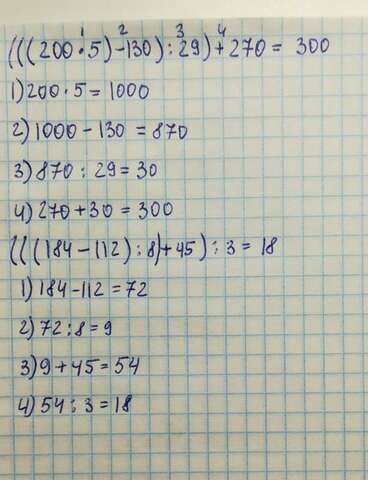 1 2 3 4
(((200·5)-130):29)+270= 300
1)200·5=1000
2)1000-130=870
3)870:29=30
4)270+30=300
(((184-112):8)+45):3=18
1)184-112=72
2)72:8=9
3)9+45=54
4)54:3=18